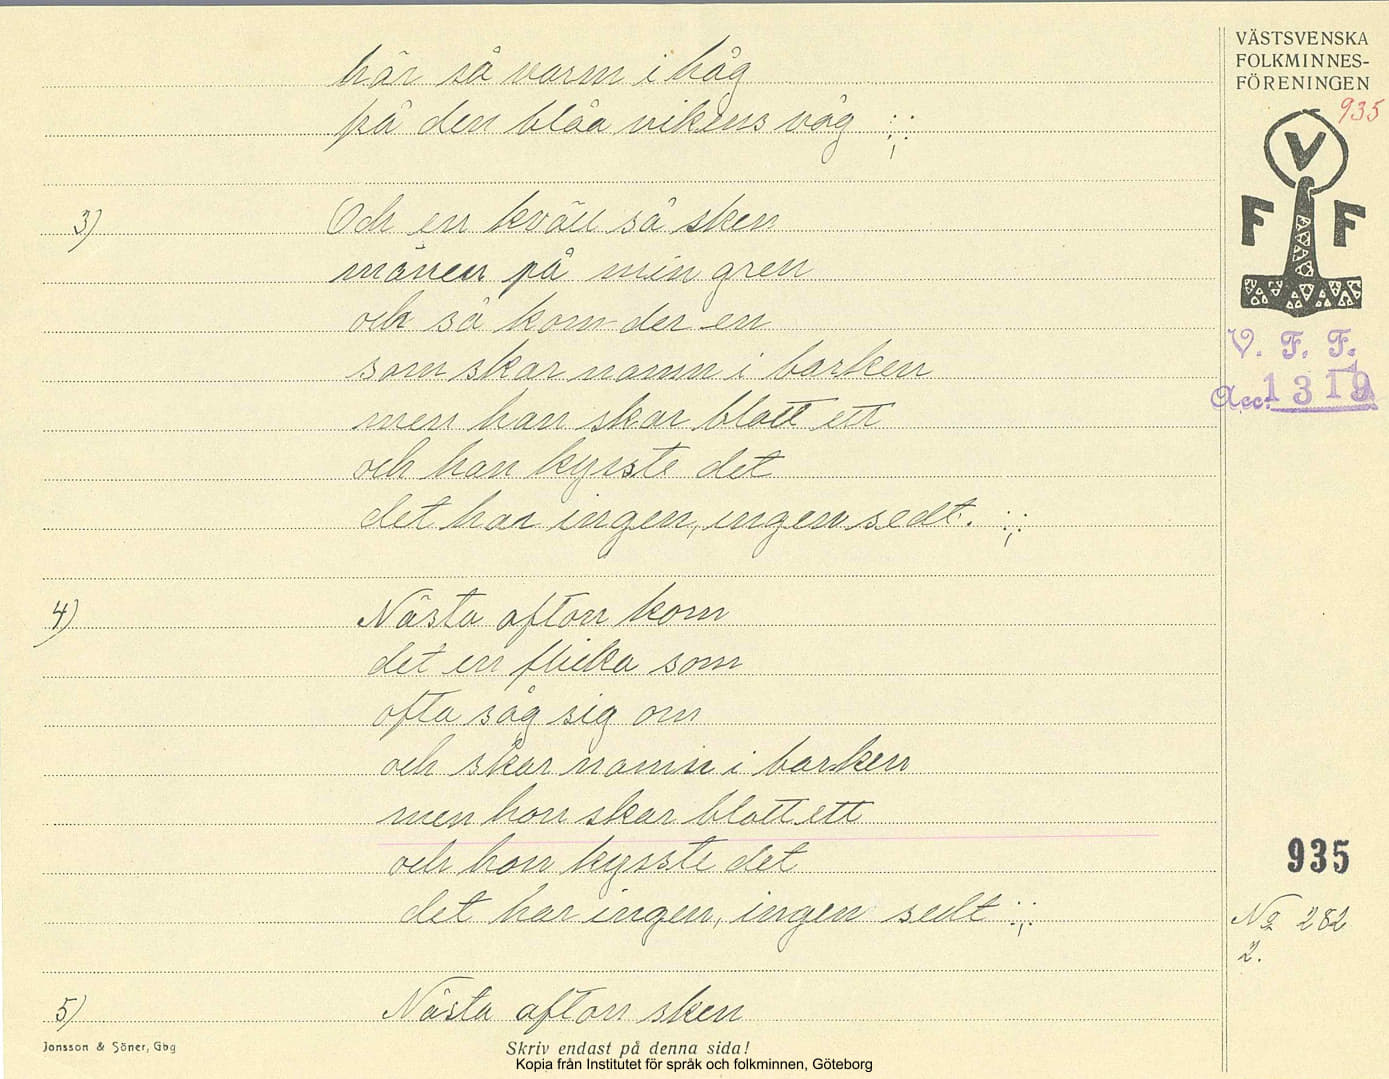 här så varm i håg
på den blåa vikens våg :;:
3) Och en kväll så sken
månen på min gren
och så kom der en
som skar namn i barken
men han skar blott ett
och han kysste det
det har ingen, ingen sedt. :;:
4) Nästa afton kom
det en flicka som
ofta såg sig om
och skar namn i barken
men hon skar blott ett
och hon kysste det
det har ingen, ingen sedt :;:
5) Nästa afton sken
VÄSTSVENSKA
FOLKMINNES-
FÖRENINGEN
935
V
F F
V. F. F.
Acc. 1319
935
No 282
2.
Jonsson & Söner, Gbg
Skriv endast på denna sida!
Kopia från Institutet för språk och folkminnen, Göteborg